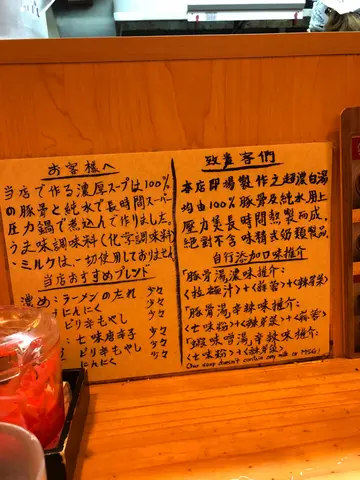 お客様へ
当店で作る濃厚スープは100%
の豚骨と純水で長時間スーパー
圧力鍋で煮込んで作りました。
うま味調味料(化学調味料)
・ミルクは、一切使用しておりません。
当店おすすめブレンド
濃め:ラーメンのたれ 少々
にんにく 少々
ピリ辛もやし 少々
七味唐辛子 少々
ピリ辛もやし 少々
にんにく 少々
致貴客們
本店即場製作之超濃白湯
均由100%豚骨及純水用上
壓力煲長時間熬製而成,
絕對不含味精或奶類製品。
自行添加口味推介
「豚骨湯濃味推介:
<拉麵汁>+<蒜蓉>+<辣芽菜>
「豚骨湯辛辣味推介:
<七味粉>+<辣芽菜>+<蒜蓉>
「蝦味噌湯辛辣味推介:
<七味粉>+<辣芽菜>
Our soup doesn't contain any milk or MSG!